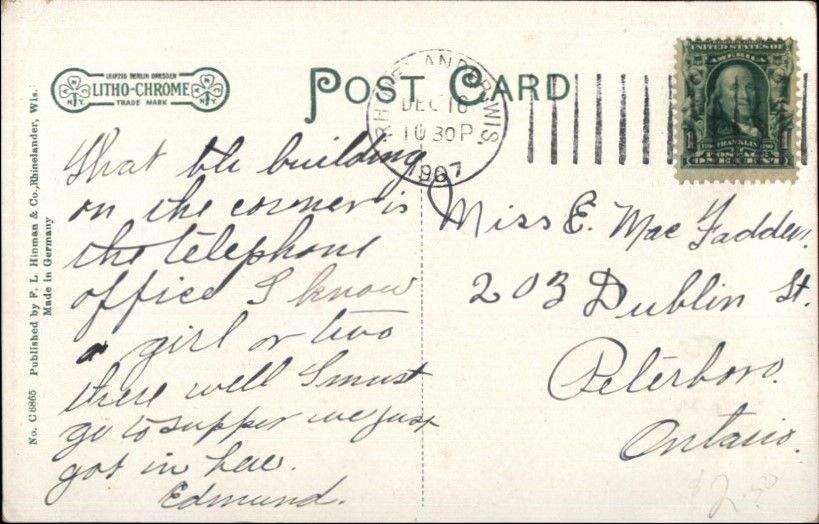 LEIPZIG BERLIN DRESDEN
LITHO-CHROME
TRADE MARK
N.Y.
N.Y.
POST CARD
RHINELANDER, WIS.
DEC 16
10 30 P
1907
UNITED STATES OF
AMERICA
FRANKLIN
POSTAGE
ONE CENT
That bh building
on the corner is
the telephone
office I know
a girl or two
there well I must
go to supper we just
got in here.
Edmund.
Miss E. MacFadden.
203 Dublin St.
Peterboro.
Ontario.
$2.50
No. C 6865 Published by F. L. Hinman & Co., Rhinelander, Wis.
Made in Germany